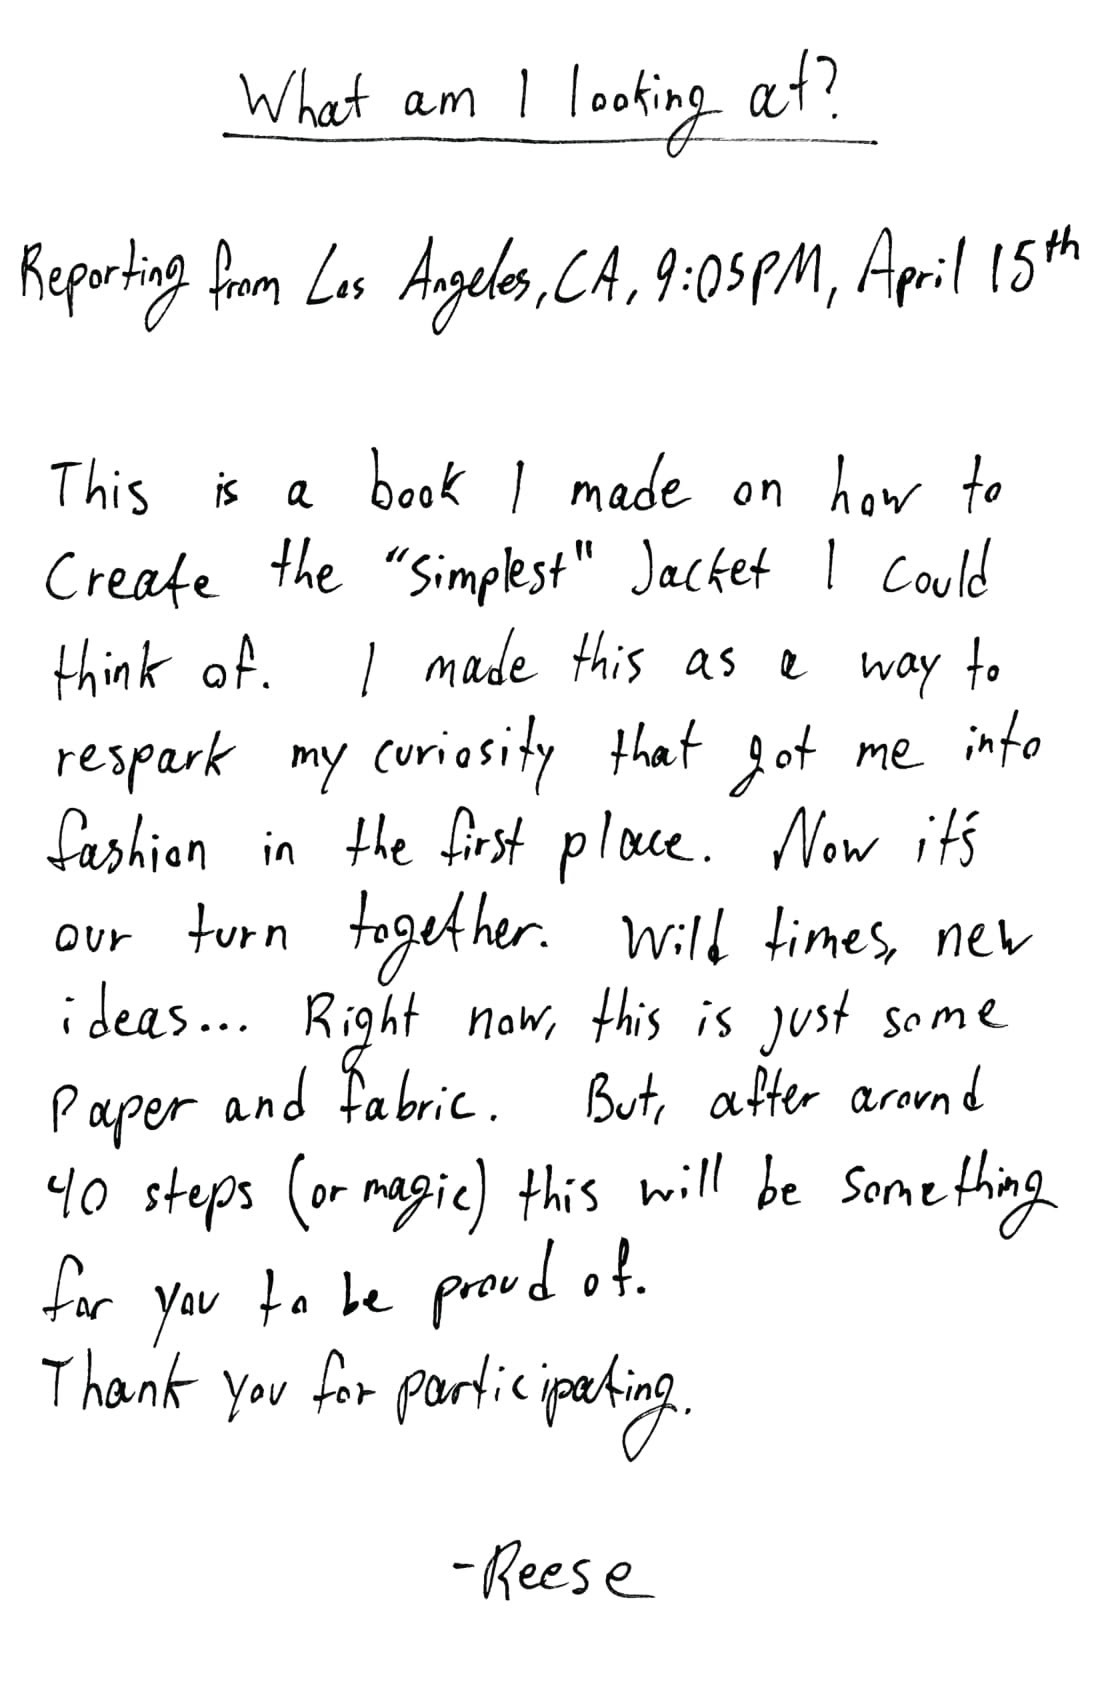 What am I looking at?
Reporting from Los Angeles, CA, 9:05PM, April 15th
This is a book I made on how to
Create the "Simplest" Jacket I Could
think of. I made this as a way to
respark my curiosity that got me into
fashion in the first place. Now it's
our turn together. Wild times, new
ideas... Right now, this is just some
Paper and fabric. But, after around
40 steps (or magic) this will be Something
for you to be proud of.
Thank you for participating.
-Reese